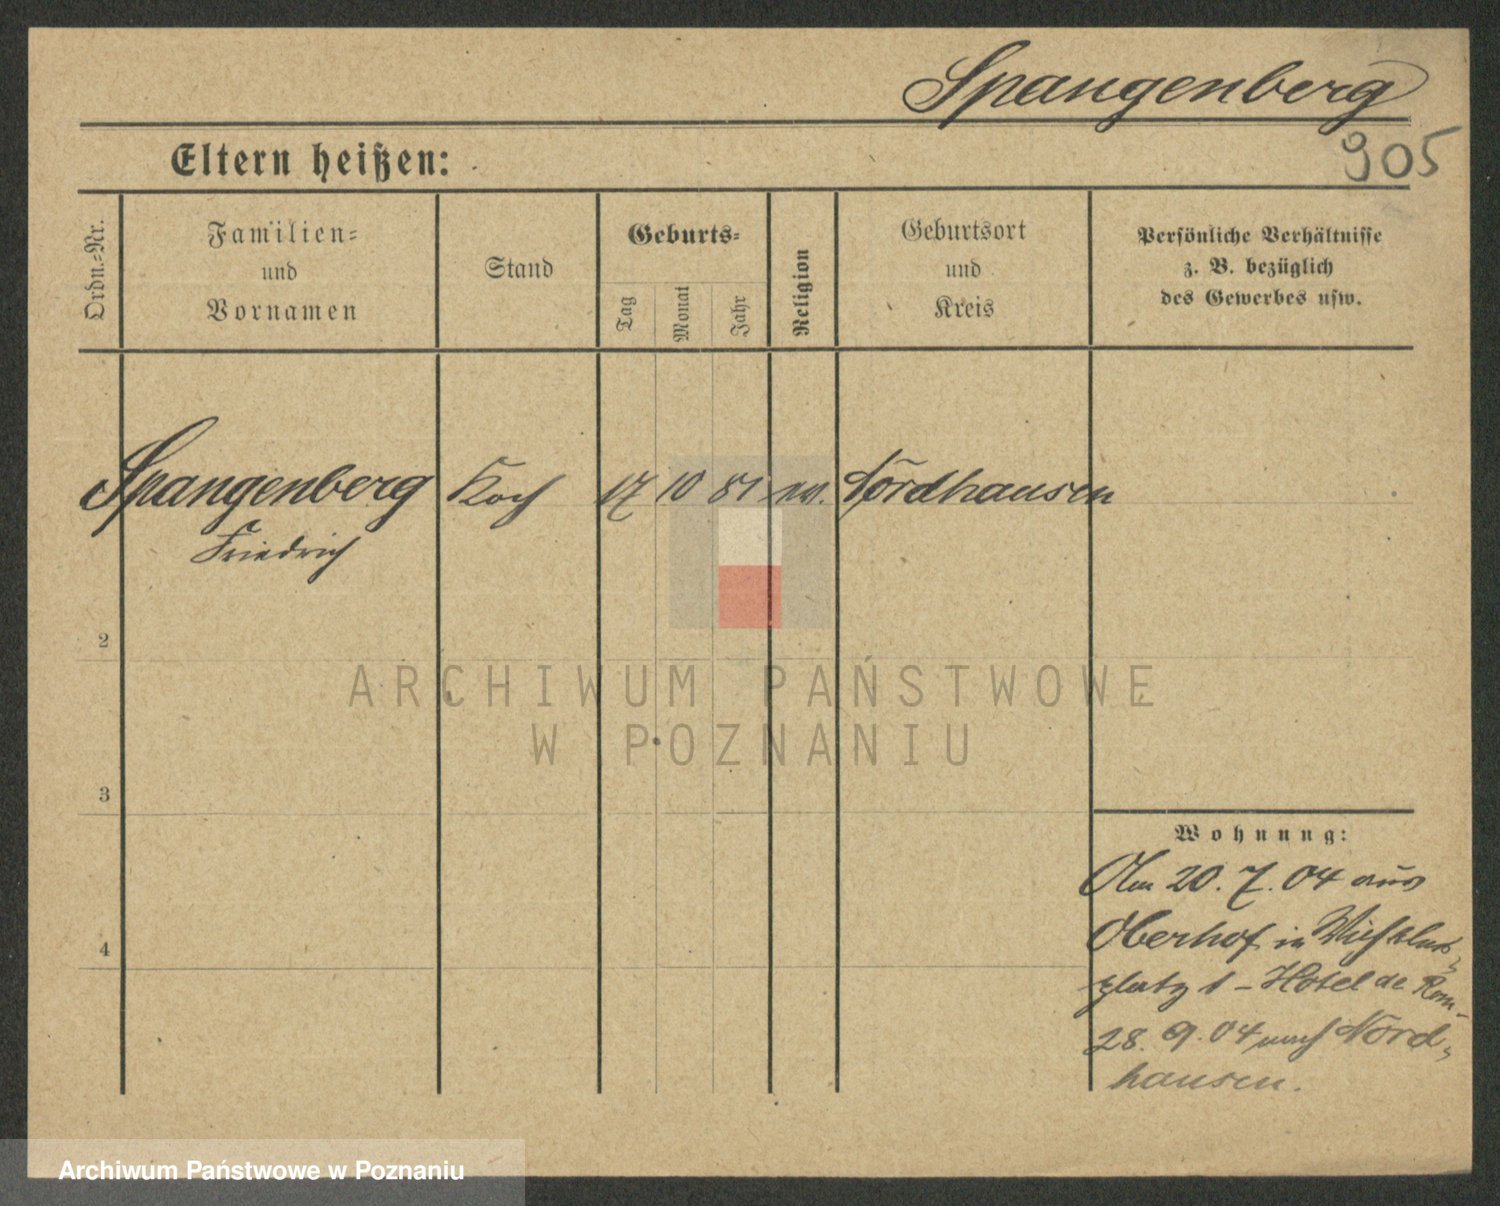 Spangenberg
905
Eltern heißen:
Ordn.-Nr.
Familien-
und
Vornamen
Stand
Geburts-
Tag
Monat
Jahr
Religion
Geburtsort
und
Kreis
Persönliche Verhältnisse
z. B. bezüglich
des Gewerbes usw.
Spangenberg Koch 17 10 81 ev. Nordhausen
Friedrich
2
3
4
Wohnung:
Am 20. 7. 04 aus
Oberhof in
platz 1 – Hotel de Rom
28. 9. 04 nach Nord-
hausen.
ARCHIWUM PAŃSTWOWE
W POZNANIU
Archiwum Państwowe w Poznaniu